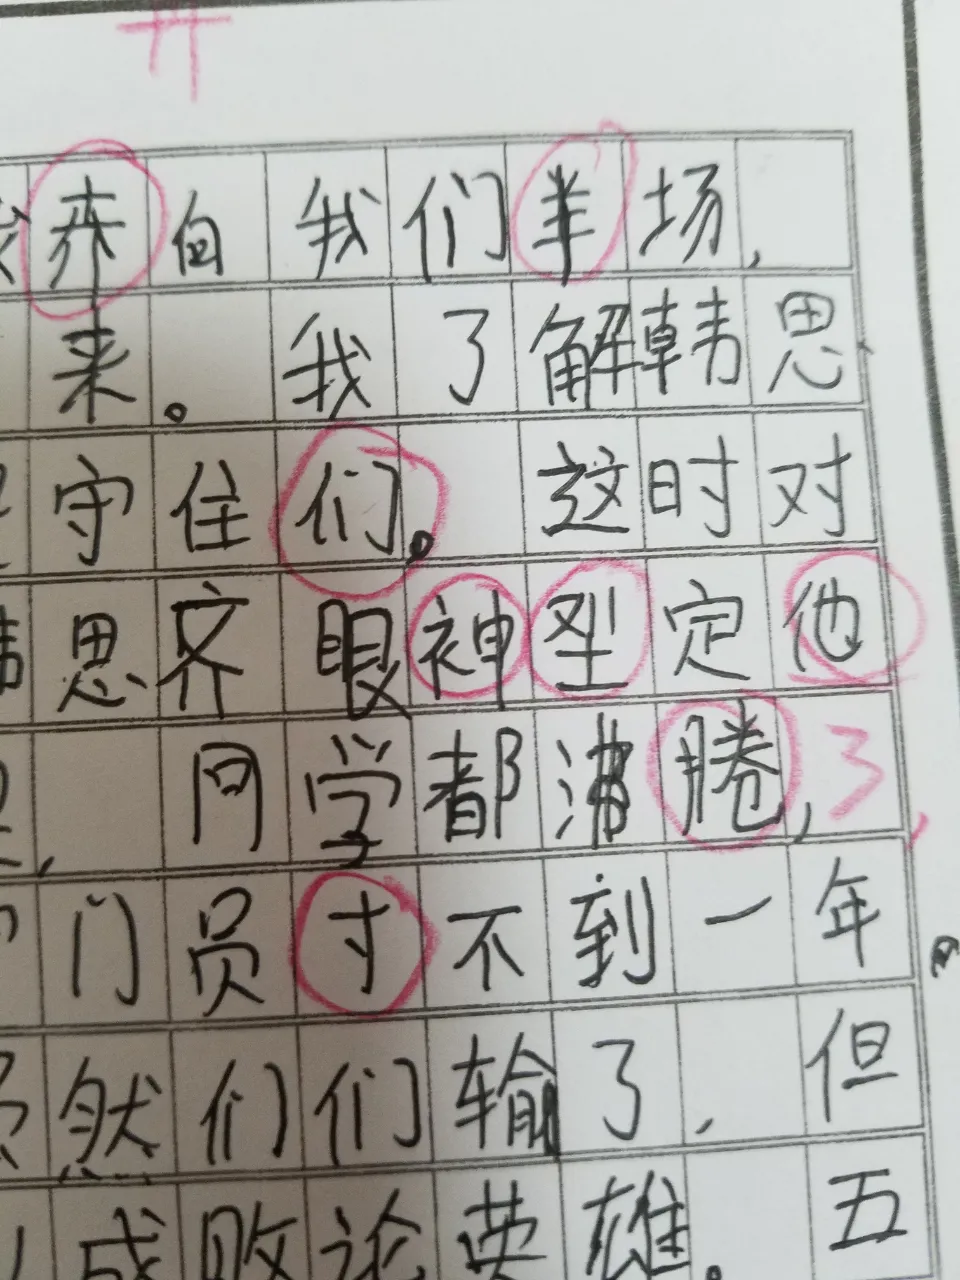 奔向我们半场，
来。我了解韩思
守住们。 这时对
思齐眼神坚定他
同学都沸腾，了，
门员才不到一年
然们们输了，但
成败论英雄。五